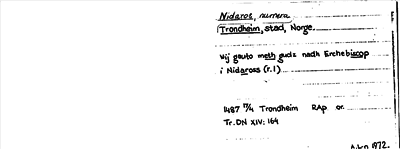 Nidaros, numera
Trondheim, stad, Norge.
Wij gauto meth gudz nadh Erchebiscop
i Nidaross (r.1)
1487 11/4 Trondheim RAp or.
Tr. DN XIV: 164
1972.